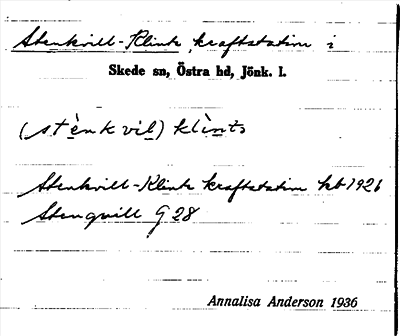 Stenkvill-Klint, kraftstation i
Skede sn, Östra hd, Jönk. l.
(stènkvil) klints
Stenkvill-Klints kraftstation kb 1926
Stenqvill G 28
Annalisa Anderson 1936